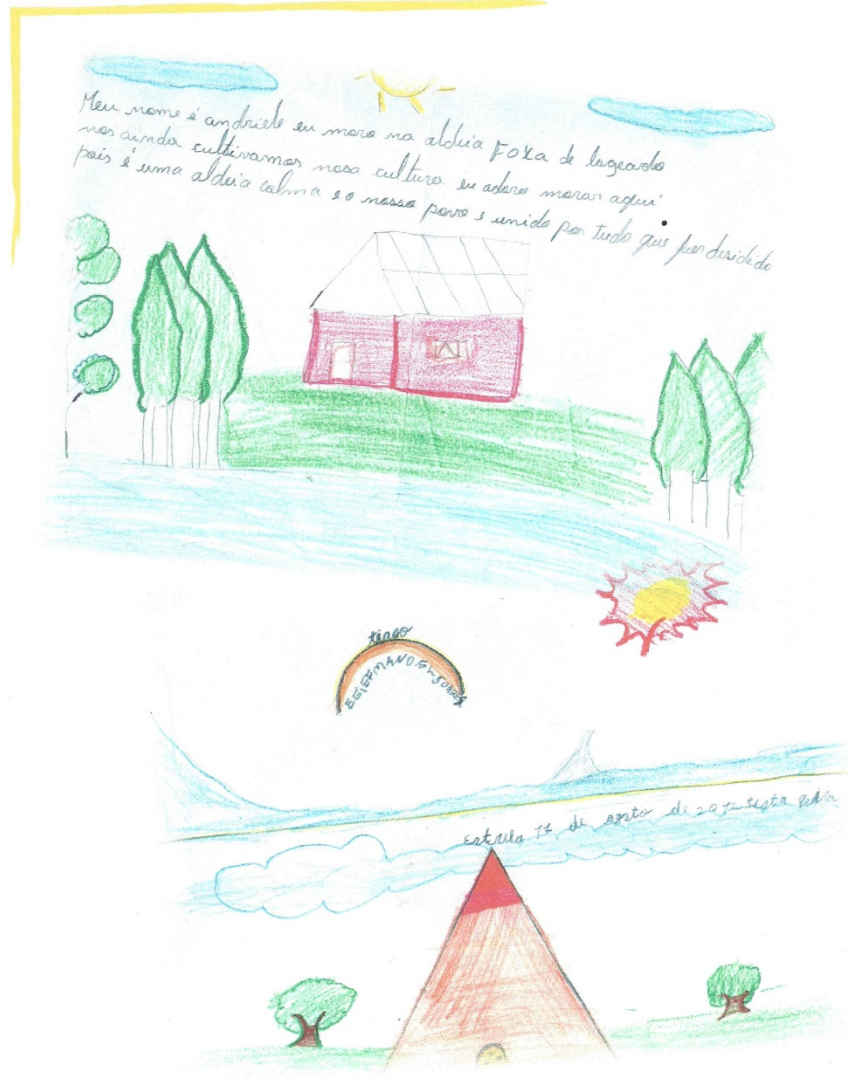 Meu nome é andriele eu moro na aldeia FOXA de lageardo
nos ainda cultivamos nosa cultura eu adoro morar aqui
pois é uma aldeia calma e o nosso povo e unido por tudo que for desidido
tiago
Estrela 11 de agosto de sexta